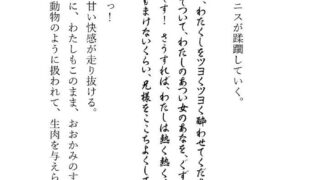 ニスが蹂躙していく。
、わたくしをツヨくツヨく酔わせてくだ
てついて、わたしのあつい女のあなを、ぐず
す! さうすれば、わたしは熱く熱く
もまけないくらい、兄様をここちよくして
っ!
甘い快感が走り抜ける。
に、わたしもこのまま、おおかみのす
動物のように扱われて、生肉を与えら